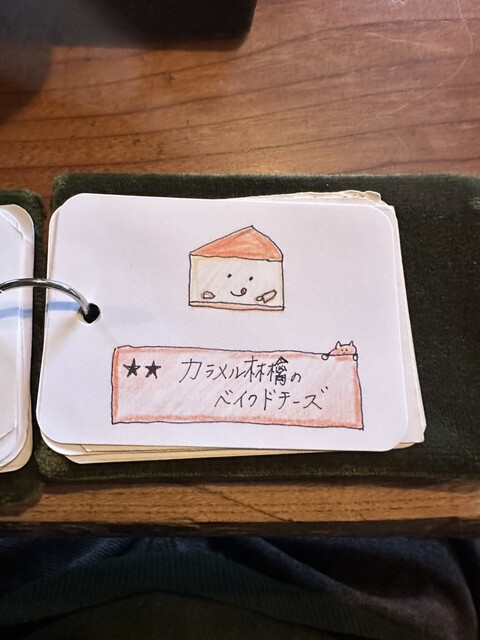 ★★ カラメル林檎の
ベイクドチーズ